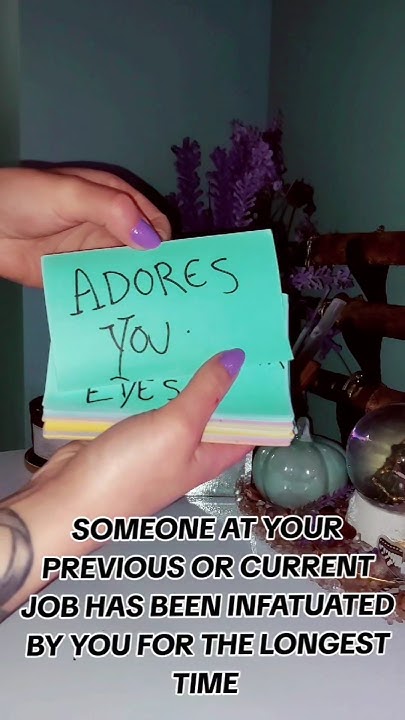 ADORES
YOU.
EYES
SOMEONE AT YOUR
PREVIOUS OR CURRENT
JOB HAS BEEN INFATUATED
BY YOU FOR THE LONGEST
TIME